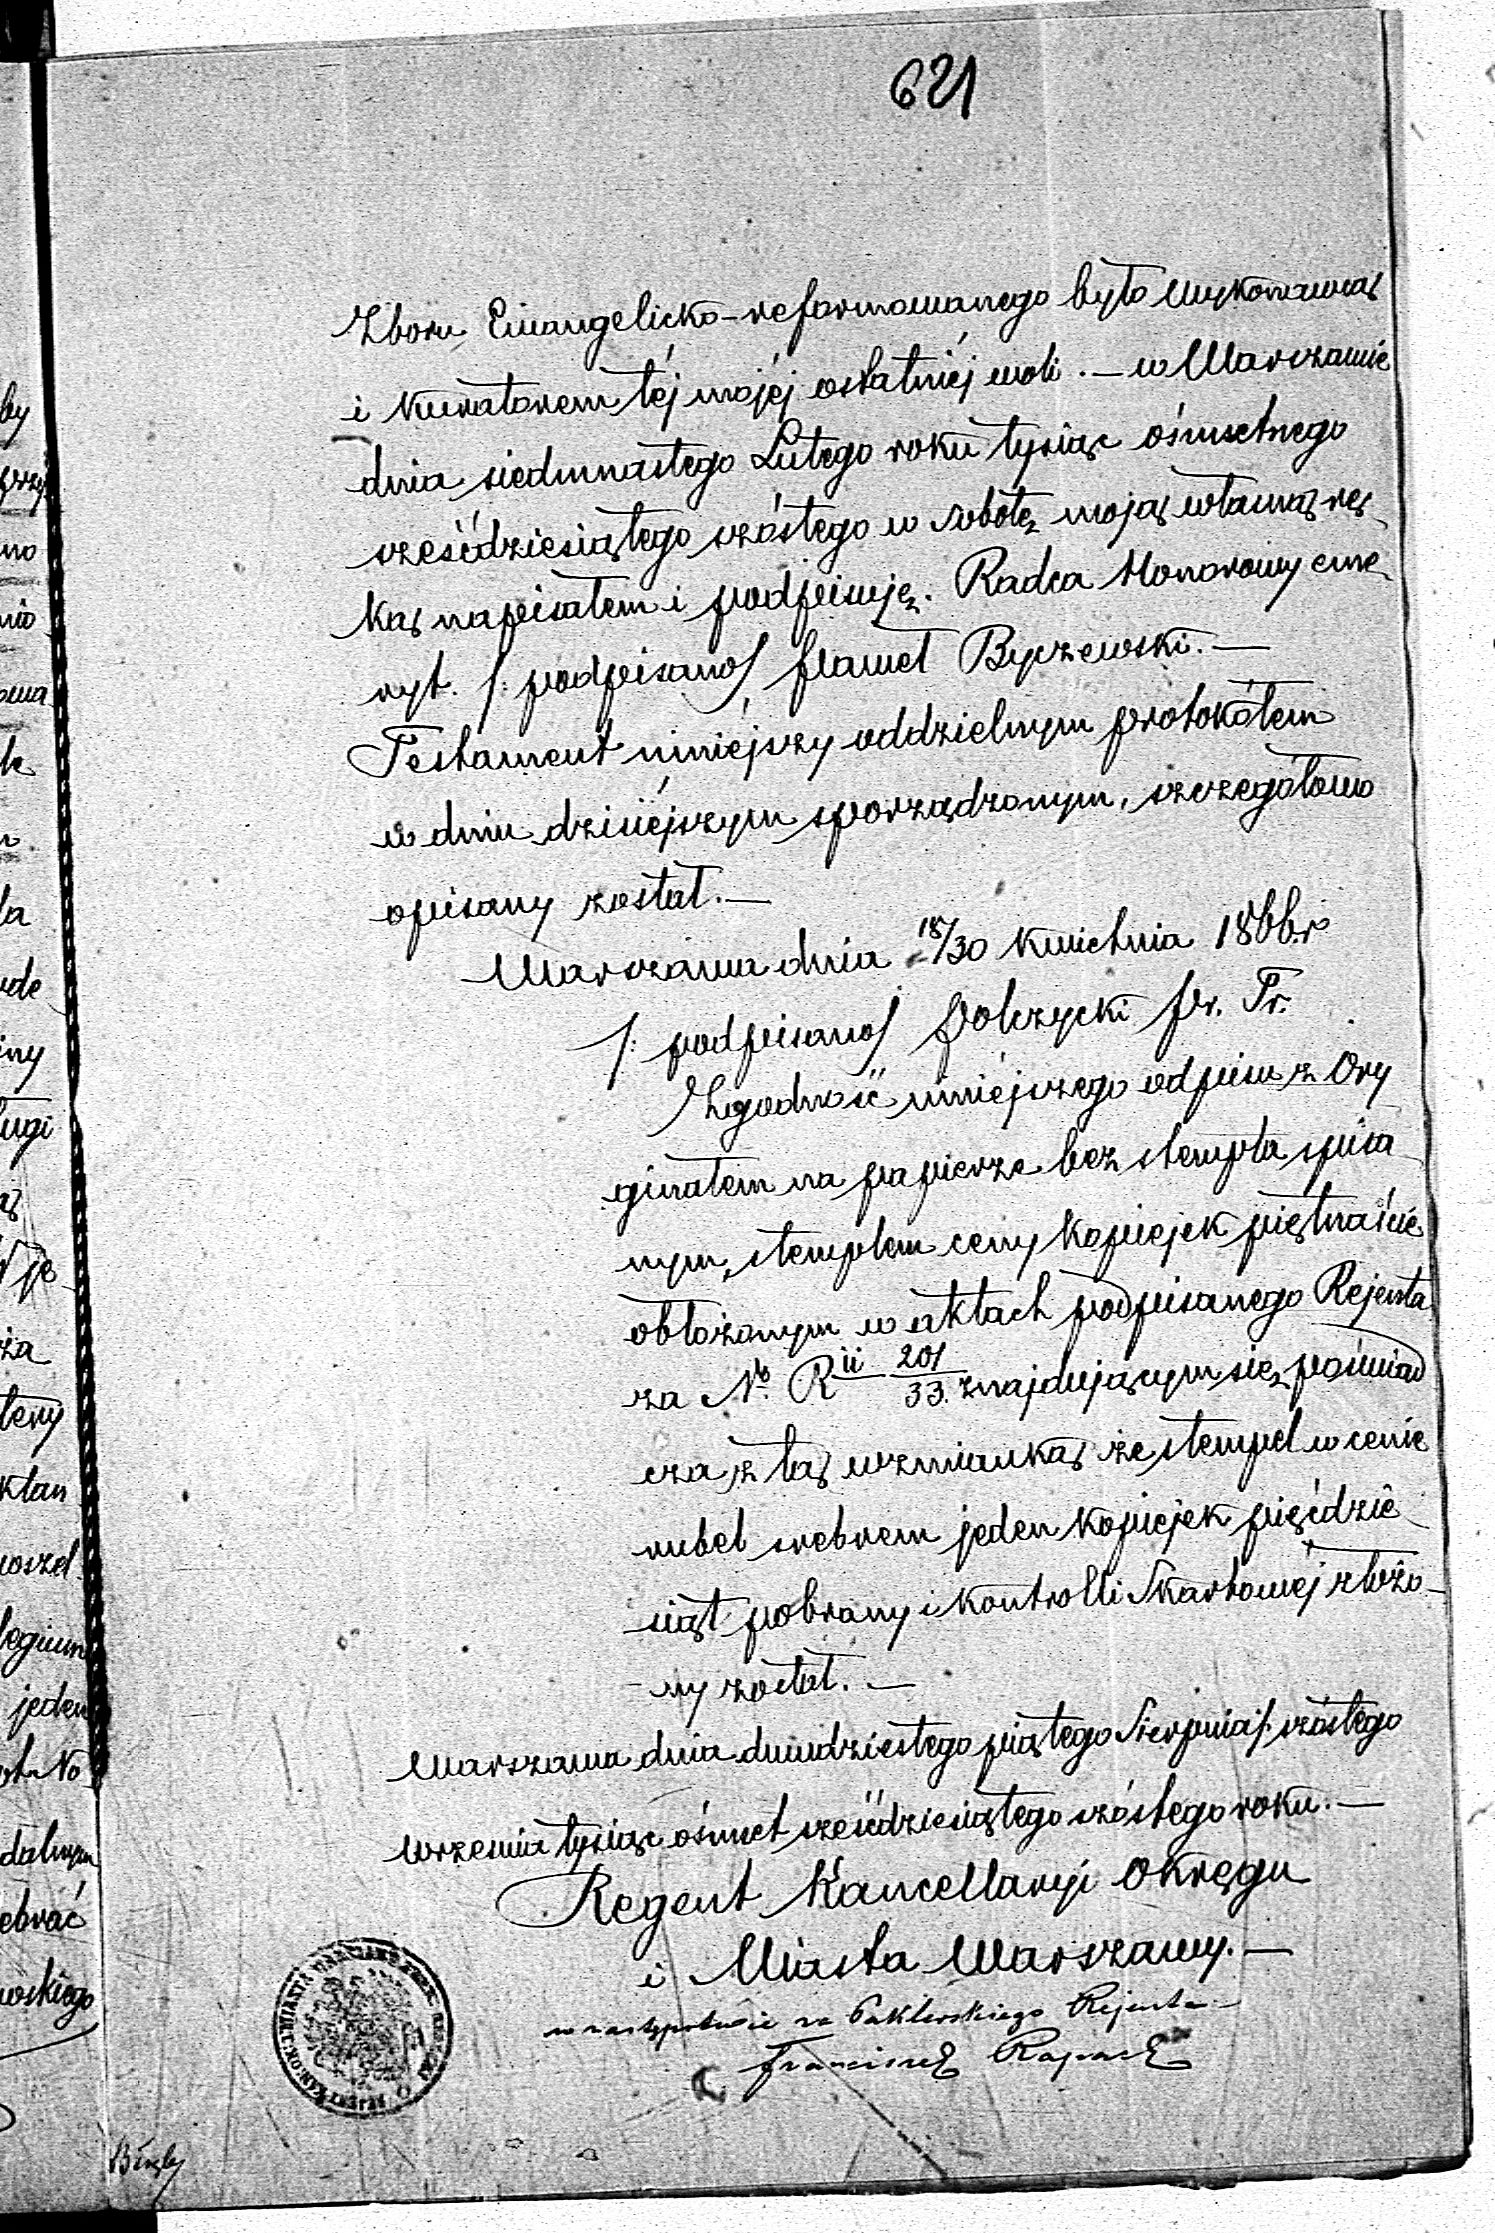 621
Zboru Ewangelicko-reformowanego było wykonawcą
i kuratorem téj mojéj ostatniéj woli. — w Warszawie
dnia siedmnastego Lutego roku tysiąc ośmsetnego
sześćdziesiątego szóstego w sobotę moją własną rę
ką napisałem i podpisuję. Radca Honorowy eme
ryt. /: podpisano/ Paweł Byczewski. —
Testament niniéjszy oddzielnym protokółem
w dniu dzisiéjszym sporządzonym, szczegółowo
opisany został. —
Warszawa dnia 18/30 kwietnia 1866 r
/: podpisano/ Pr. Tr.
Zgodność niniéjszego odpisu z Ory
ginałem na papierze bez stempla spisa
nym, stemplem ceny kopiejek piętnaście
obłożonym w aktach podpisanego Rejenta
za No. Rii 201/33. znajdującym się, poświad
cza z tą wzmianką że stempel w cenie
rubel srebrem jeden kopiejek pięćdzie
siąt pobrany i kontrolli Skarbowéj złożo-
ny został. —
Warszawa dnia dwudziestego piątego Sierpnia/: szóstego
września tysiąc ośmset sześćdziesiątego szóstego roku. —
Regent Kancellaryi Okręgu
i Miasta Warszawy. —
w zastępstwie za Rejenta
Franciszek